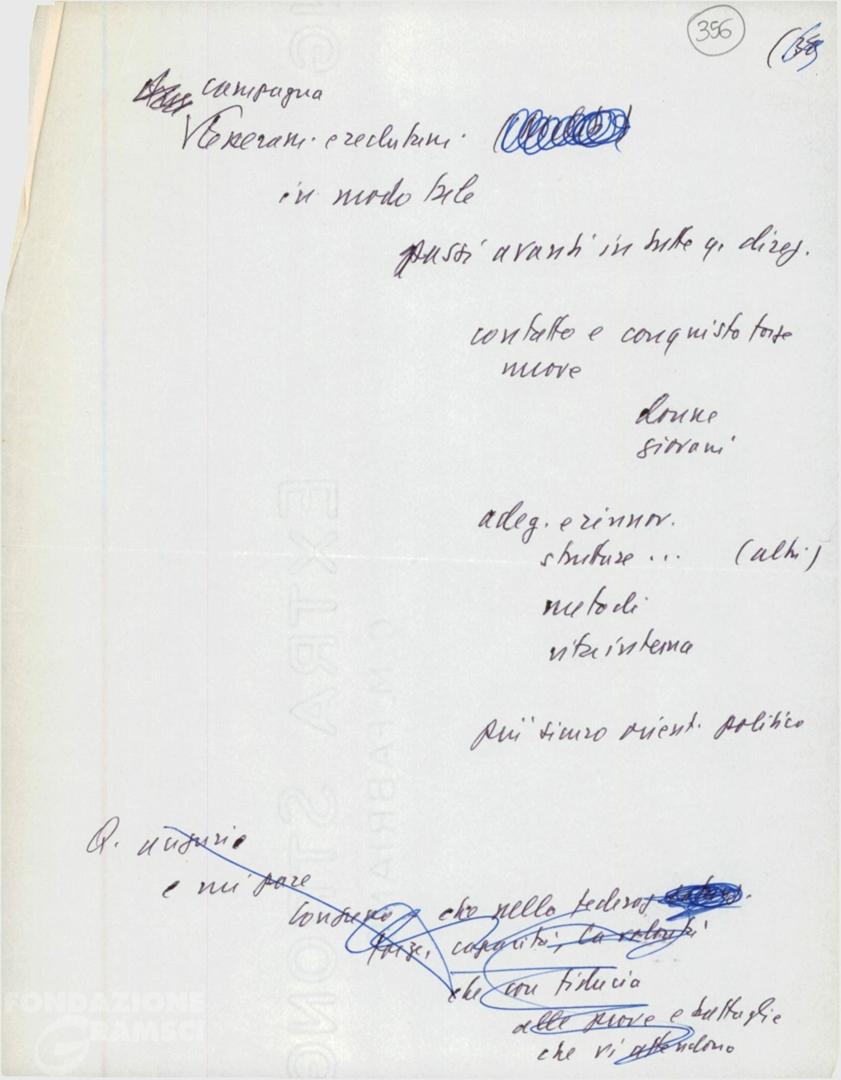 356
campagna
in modo tale
passi avanti in tutte q. direz.
contatto e conquista forze
nuove
donne
giovani
adeg. e rinnov.
strutture ... (altri)
metodi
vita interna
più sicuro orient. politico
Q. augurio
e mi pare
che nella federaz
forze, capacità, la volontà
che con fiducia
alle prove e battaglie
che vi attendono
EXTRA STRONG
C. M. FABRIANO
FONDAZIONE
GRAMSCI